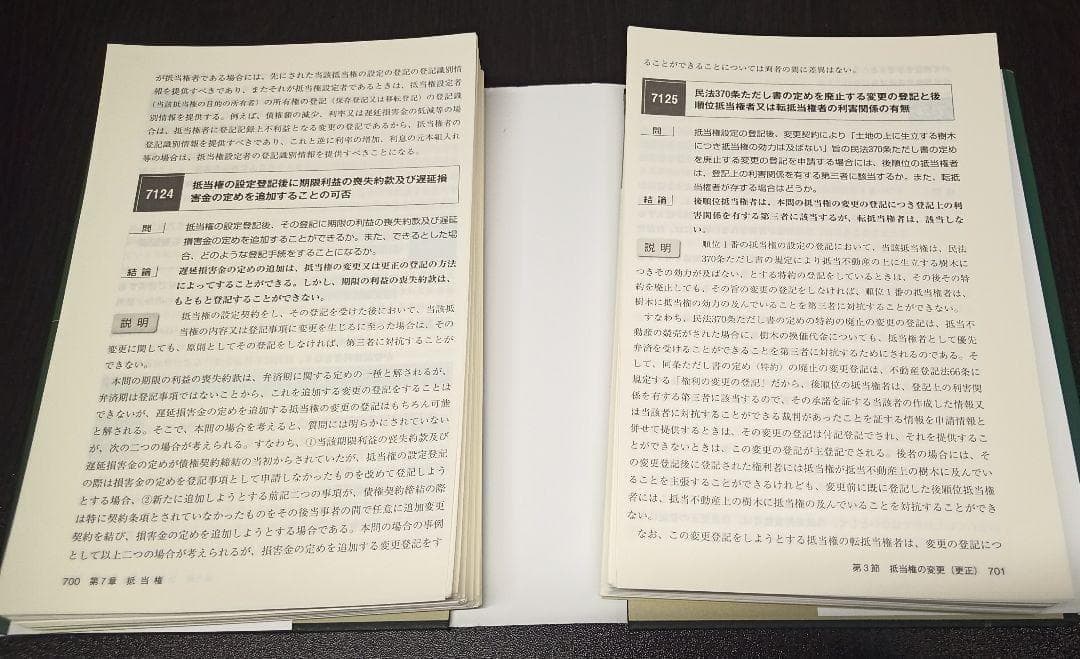 が抵当権者である場合には、先にされた当該抵当権の設定の登記の登記識別情
報を提供すべきであり、またそれが抵当権設定者であるときは、抵当権設定者
(当該抵当権の目的の所有者)の所有権の登記(保存登記又は移転登記)の登記識
別情報を提供する。例えば、債権額の減少、利率又は遅延損害金の低減等の場
合は、抵当権者に登記記録上不利益となる変更の登記であるから、抵当権者の
登記識別情報を提供すべきであり、これと逆に利率の増加、利息の元本組入れ
等の場合は、抵当権設定者の登記識別情報を提供すべきことになる。
7124 抵当権の設定登記後に期限利益の喪失約款及び遅延損
害金の定めを追加することの可否
問 抵当権の設定登記後、その登記に期限の利益の喪失約款及び遅延
損害金の定めを追加することができるか。また、できるとした場
合、どのような登記手続をすることになるか。
結論 遅延損害金の定めの追加は、抵当権の変更又は更正の登記の方法
によってすることができる。しかし、期限の利益の喪失約款は、
もともと登記することができない。
説明 抵当権の設定契約をし、その登記を受けた後において、当該抵
当権の内容又は登記事項に変更を生じるに至った場合は、その
変更に関しても、原則としてその登記をしなければ、第三者に対抗することが
できない。
本問の期限の利益の喪失約款は、弁済期に関する定めの一種と解されるが、
弁済期は登記事項ではないことから、これを追加する変更の登記をすることは
できないが、遅延損害金の定めを追加する抵当権の変更の登記はもちろん可能
と解される。そこで、本問の場合を考えると、質問には明らかにされていない
が、次の二つの場合が考えられる。すなわち、①当該期限利益の喪失約款及び
遅延損害金の定めが債権契約締結の当初からされていたが、抵当権の設定登記
の際は損害金の定めを登記事項として申請しなかったものを改めて登記しよう
とする場合、②新たに追加しようとする前記二つの事項が、債権契約締結の際
は特に契約条項とされていなかったものをその後当事者の間で任意に追加変更
契約を結び、損害金の定めを追加しようとする場合である。本問の場合の事例
として以上二つの場合が考えられるが、損害金の定めを追加する変更登記をす
700 第7章 抵当権
ることができることについては両者の間に差異はない。
7125 民法370条ただし書の定めを廃止する変更の登記と後
順位抵当権者又は転抵当権者の利害関係の有無
問 抵当権設定の登記後、変更契約により「土地の上に生立する樹木
につき抵当権の効力は及ばない」旨の民法370条ただし書の定め
を廃止する変更の登記を申請する場合には、後順位の抵当権者
は、登記上の利害関係を有する第三者に該当するか。また、転抵
当権者が存する場合はどうか。
結論 後順位抵当権者は、本問の抵当権の変更の登記につき登記上の利
害関係を有する第三者に該当するが、転抵当権者は、該当しな
い。
説明 順位1番の抵当権の設定の登記において、当該抵当権は、民法
370条ただし書の規定により抵当不動産の上に生立する樹木に
つきその効力が及ばない、とする特約の登記をしているときは、その後その特
約を廃止しても、その旨の変更の登記をしなければ、順位1番の抵当権者は、
樹木に抵当権の効力の及んでいることを第三者に対抗することができない。
すなわち、民法370条ただし書の定めの特約の廃止の変更の登記は、抵当不
動産の競売がされた場合に、樹木の換価代金についても、抵当権者として優先
弁済を受けることができることを第三者に対抗するためにされるのである。そ
して、同条ただし書の定め(特約)の廃止の変更登記は、不動産登記法66条に
規定する「権利の変更の登記」だから、後順位の抵当権者は、登記上の利害関
係を有する第三者に該当するので、その承諾を証する当該者の作成した情報又
は当該者に対抗することができる裁判があったことを証する情報を申請情報と
併せて提供するときは、その変更の登記は付記登記でされ、それを提供するこ
とができないときは、この変更の登記が主登記でされる。後者の場合には、そ
の変更登記後に登記された権利者には抵当権が抵当不動産上の樹木に及んでい
ることを主張することができるけれども、変更前に既に登記した後順位抵当権
者には、抵当不動産上の樹木に抵当権の及んでいることを対抗することができ
ない。
なお、この変更登記をしようとする抵当権の転抵当権者は、変更の登記につ
第3節 抵当権の変更(更正) 701